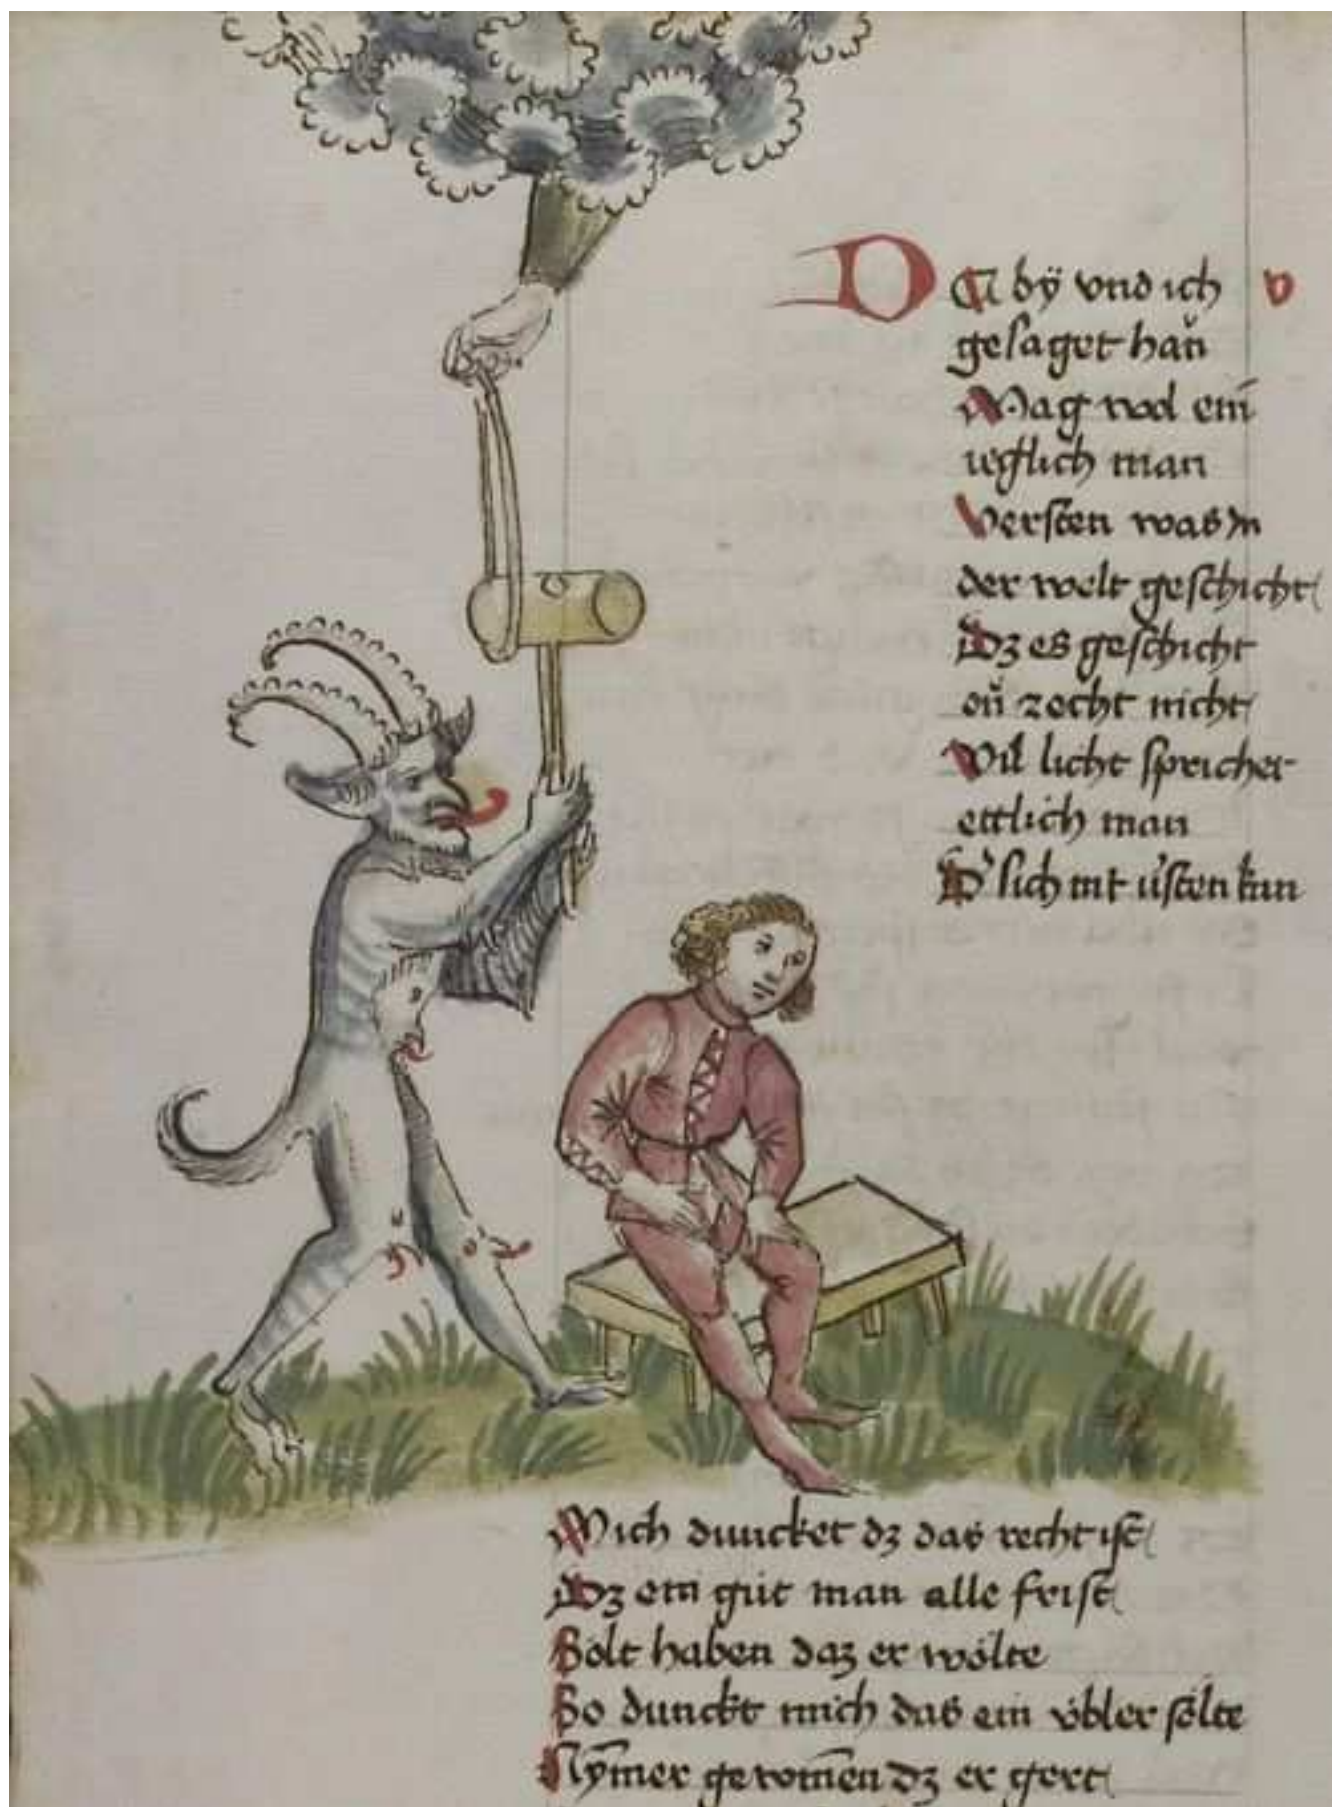 DA bÿ vnd ich v
gesaget han
Mag wol ein
ieglich man
Versten was in
der welt geschicht
Dz es geschicht
on zecht nicht
Vil licht sprichet
ettlich man
D' sich nit v'sten kan
Mich duncket dz das recht ist
Dz ein gůt man alle frist
Solt haben daz er wölte
So dunckt mich das ein vbler sölte
Nÿmer gewom̄en dz er gert